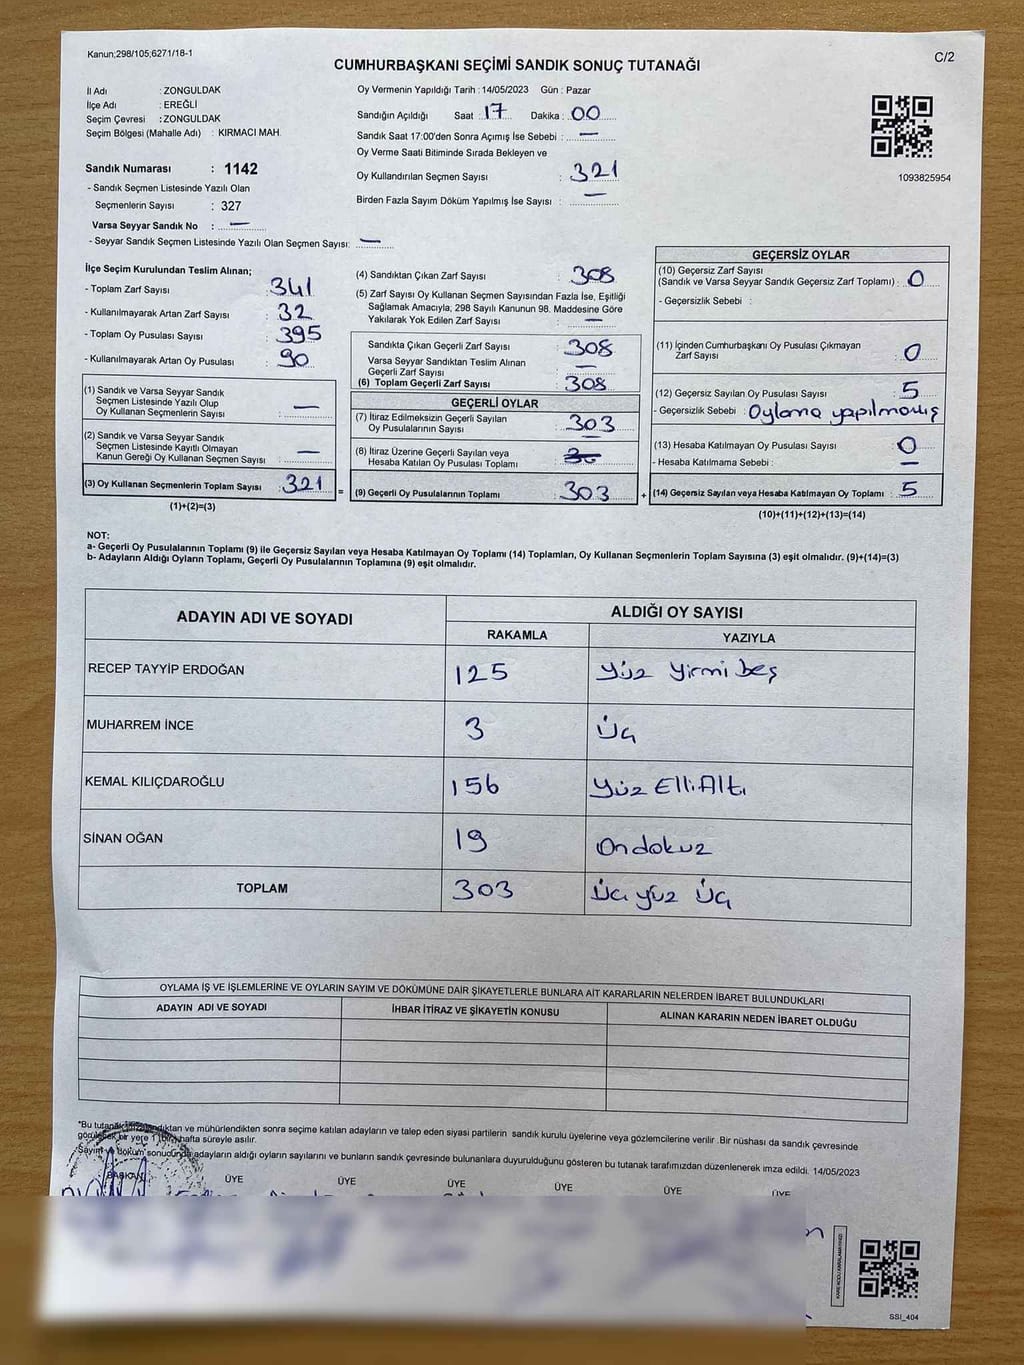 Kanun;298/105;6271/18-1
C/2
CUMHURBAŞKANI SEÇİMİ SANDIK SONUÇ TUTANAĞI
İl Adı : ZONGULDAK
İlçe Adı : EREĞLİ
Seçim Çevresi : ZONGULDAK
Seçim Bölgesi (Mahalle Adı) : KIRMACI MAH.
Sandık Numarası : 1142
- Sandık Seçmen Listesinde Yazılı Olan
Seçmenlerin Sayısı : 327
Varsa Seyyar Sandık No : —
- Seyyar Sandık Seçmen Listesinde Yazılı Olan Seçmen Sayısı: —
Oy Vermenin Yapıldığı Tarih : 14/05/2023 Gün : Pazar
Sandığın Açıldığı Saat : 17 Dakika : 00
Sandık Saat 17:00'den Sonra Açımış İse Sebebi : —
Oy Verme Saati Bitiminde Sırada Bekleyen ve
Oy Kullandırılan Seçmen Sayısı : 321
Birden Fazla Sayım Döküm Yapılmış İse Sayısı : —
1093825954
İlçe Seçim Kurulundan Teslim Alınan;
- Toplam Zarf Sayısı : 341
- Kullanılmayarak Artan Zarf Sayısı : 32
- Toplam Oy Pusulası Sayısı : 395
- Kullanılmayarak Artan Oy Pusulası : 90
(1) Sandık ve Varsa Seyyar Sandık
Seçmen Listesinde Yazılı Olup
Oy Kullanan Seçmenlerin Sayısı : —
(2) Sandık ve Varsa Seyyar Sandık
Seçmen Listesinde Kayıtlı Olmayan
Kanun Gereği Oy Kullanan Seçmen Sayısı : —
(3) Oy Kullanan Seçmenlerin Toplam Sayısı : 321
(1)+(2)=(3)
(4) Sandıktan Çıkan Zarf Sayısı : 308
(5) Zarf Sayısı Oy Kullanan Seçmen Sayısından Fazla İse, Eşitliği
Sağlamak Amacıyla, 298 Sayılı Kanunun 98. Maddesine Göre
Yakılarak Yok Edilen Zarf Sayısı : —
Sandıkta Çıkan Geçerli Zarf Sayısı : 308
Varsa Seyyar Sandıktan Teslim Alınan
Geçerli Zarf Sayısı : —
(6) Toplam Geçerli Zarf Sayısı : 308
GEÇERLİ OYLAR
(7) İtiraz Edilmeksizin Geçerli Sayılan
Oy Pusulalarının Sayısı : 303
(8) İtiraz Üzerine Geçerli Sayılan veya
Hesaba Katılan Oy Pusulası Toplamı : —
= (9) Geçerli Oy Pusulalarının Toplamı : 303
GEÇERSİZ OYLAR
(10) Geçersiz Zarf Sayısı
(Sandık ve Varsa Seyyar Sandık Geçersiz Zarf Toplamı) : 0
- Geçersizlik Sebebi :
(11) İçinden Cumhurbaşkanı Oy Pusulası Çıkmayan
Zarf Sayısı : 0
(12) Geçersiz Sayılan Oy Pusulası Sayısı : 5
- Geçersizlik Sebebi : Oylama yapılmamış
(13) Hesaba Katılmayan Oy Pusulası Sayısı : 0
- Hesaba Katılmama Sebebi : —
+ (14) Geçersiz Sayılan veya Hesaba Katılmayan Oy Toplamı : 5
(10)+(11)+(12)+(13)=(14)
NOT:
a- Geçerli Oy Pusulalarının Toplamı (9) ile Geçersiz Sayılan veya Hesaba Katılmayan Oy Toplamı (14) Toplamları, Oy Kullanan Seçmenlerin Toplam Sayısına (3) eşit olmalıdır. (9)+(14)=(3)
b- Adayların Aldığı Oyların Toplamı, Geçerli Oy Pusulalarının Toplamına (9) eşit olmalıdır.
ADAYIN ADI VE SOYADI ALDIĞI OY SAYISI
RAKAMLA YAZIYLA
RECEP TAYYİP ERDOĞAN 125 Yüz Yirmi beş
MUHARREM İNCE 3 Üç
KEMAL KILIÇDAROĞLU 156 Yüz Elli Altı
SİNAN OĞAN 19 Ondokuz
TOPLAM 303 Üç yüz Üç
OYLAMA İŞ VE İŞLEMLERİNE VE OYLARIN SAYIM VE DÖKÜMÜNE DAİR ŞİKAYETLERLE BUNLARA AİT KARARLARIN NELERDEN İBARET BULUNDUKLARI
ADAYIN ADI VE SOYADI İHBAR İTİRAZ VE ŞİKAYETİN KONUSU ALINAN KARARIN NEDEN İBARET OLDUĞU
*Bu tutanak imzalandıktan ve mühürlendikten sonra seçime katılan adayların ve talep eden siyasi partilerin sandık kurulu üyelerine veya gözlemcilerine verilir .Bir nüshası da sandık çevresinde
görülecek bir yere 1 (bir) hafta süreyle asılır.
Sayım ve döküm sonucunda adayların aldığı oyların sayılarını ve bunların sandık çevresinde bulunanlara duyurulduğunu gösteren bu tutanak tarafımızdan düzenlenerek imza edildi. 14/05/2023
BAŞKAN ÜYE ÜYE ÜYE ÜYE ÜYE ÜYE
SSI_404